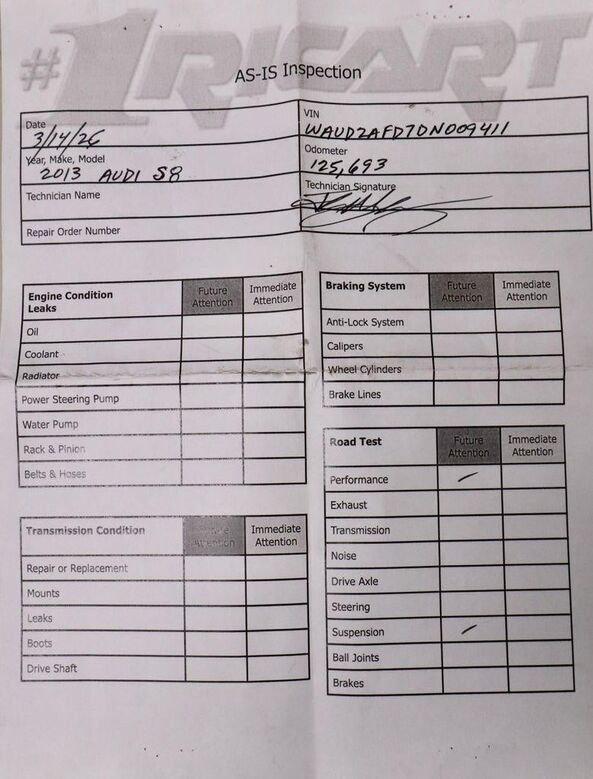 #1 RICART
AS-IS Inspection
Date
3/14/26
VIN
WAUD2AFD7DN009411
Year, Make, Model
2013 AUDI S8
Odometer
125,693
Technician Name
Technician Signature
Repair Order Number
Engine Condition
Leaks
Future Attention
Immediate Attention
Oil
Coolant
Radiator
Power Steering Pump
Water Pump
Rack & Pinion
Belts & Hoses
Transmission Condition
Future Attention
Immediate Attention
Repair or Replacement
Mounts
Leaks
Boots
Drive Shaft
Braking System
Future Attention
Immediate Attention
Anti-Lock System
Calipers
Wheel Cylinders
Brake Lines
Road Test
Future Attention
Immediate Attention
Performance
Exhaust
Transmission
Noise
Drive Axle
Steering
Suspension
Ball Joints
Brakes